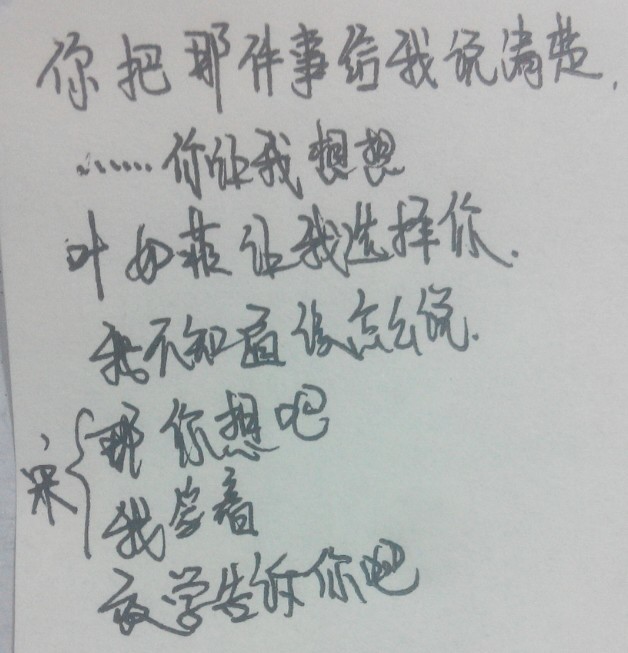 你把那件事给我说清楚.
……你让我想想
叶如菲让我选择你.
我不知道该怎么说.
那你想吧
我等着
放学告诉你吧